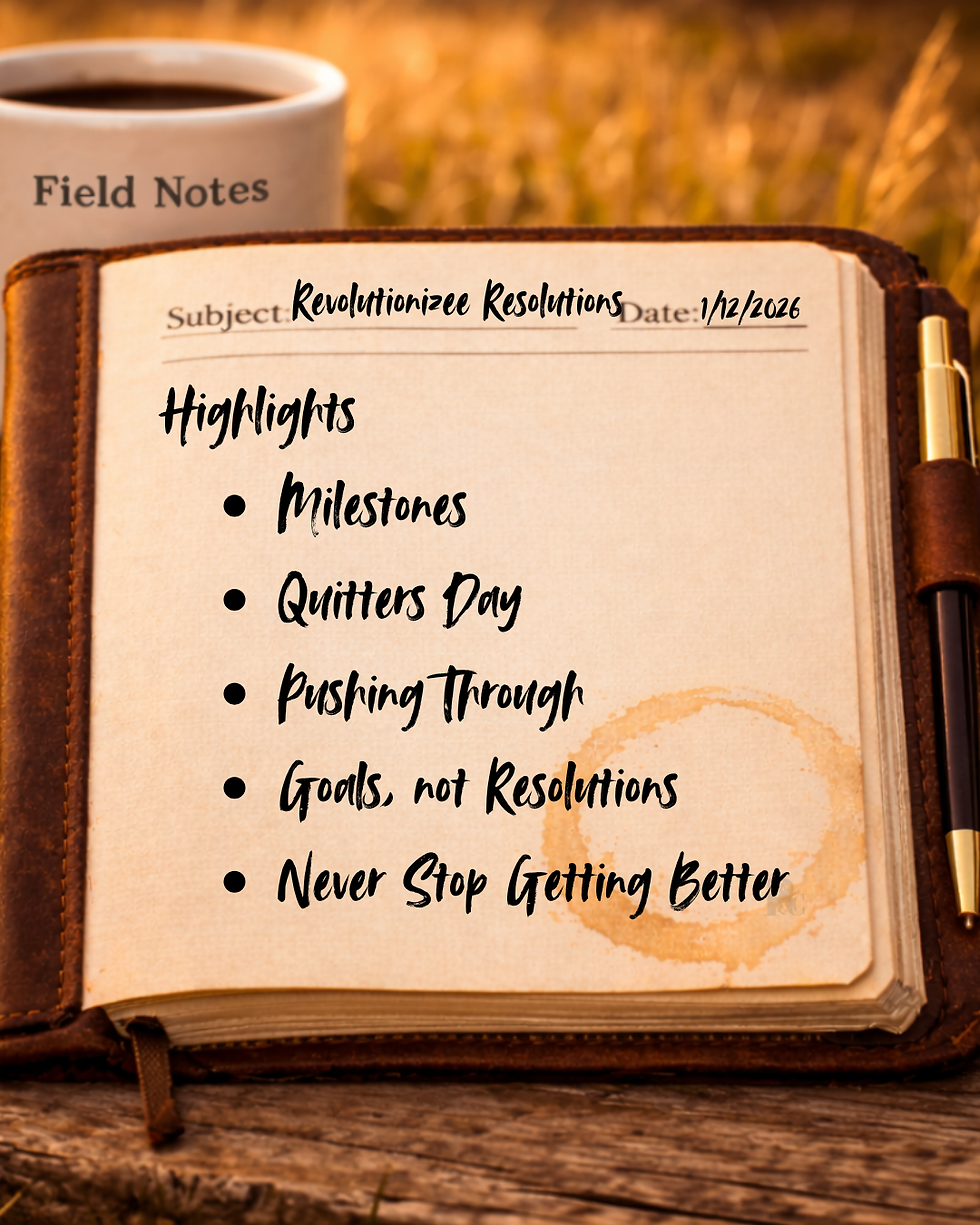 Field Notes
Subject: Revolutionizee Resolutions Date: 1/12/2026
Highlights
• Milestones
• Quitters Day
• Pushing Through
• Goals, not Resolutions
• Never Stop Getting Better